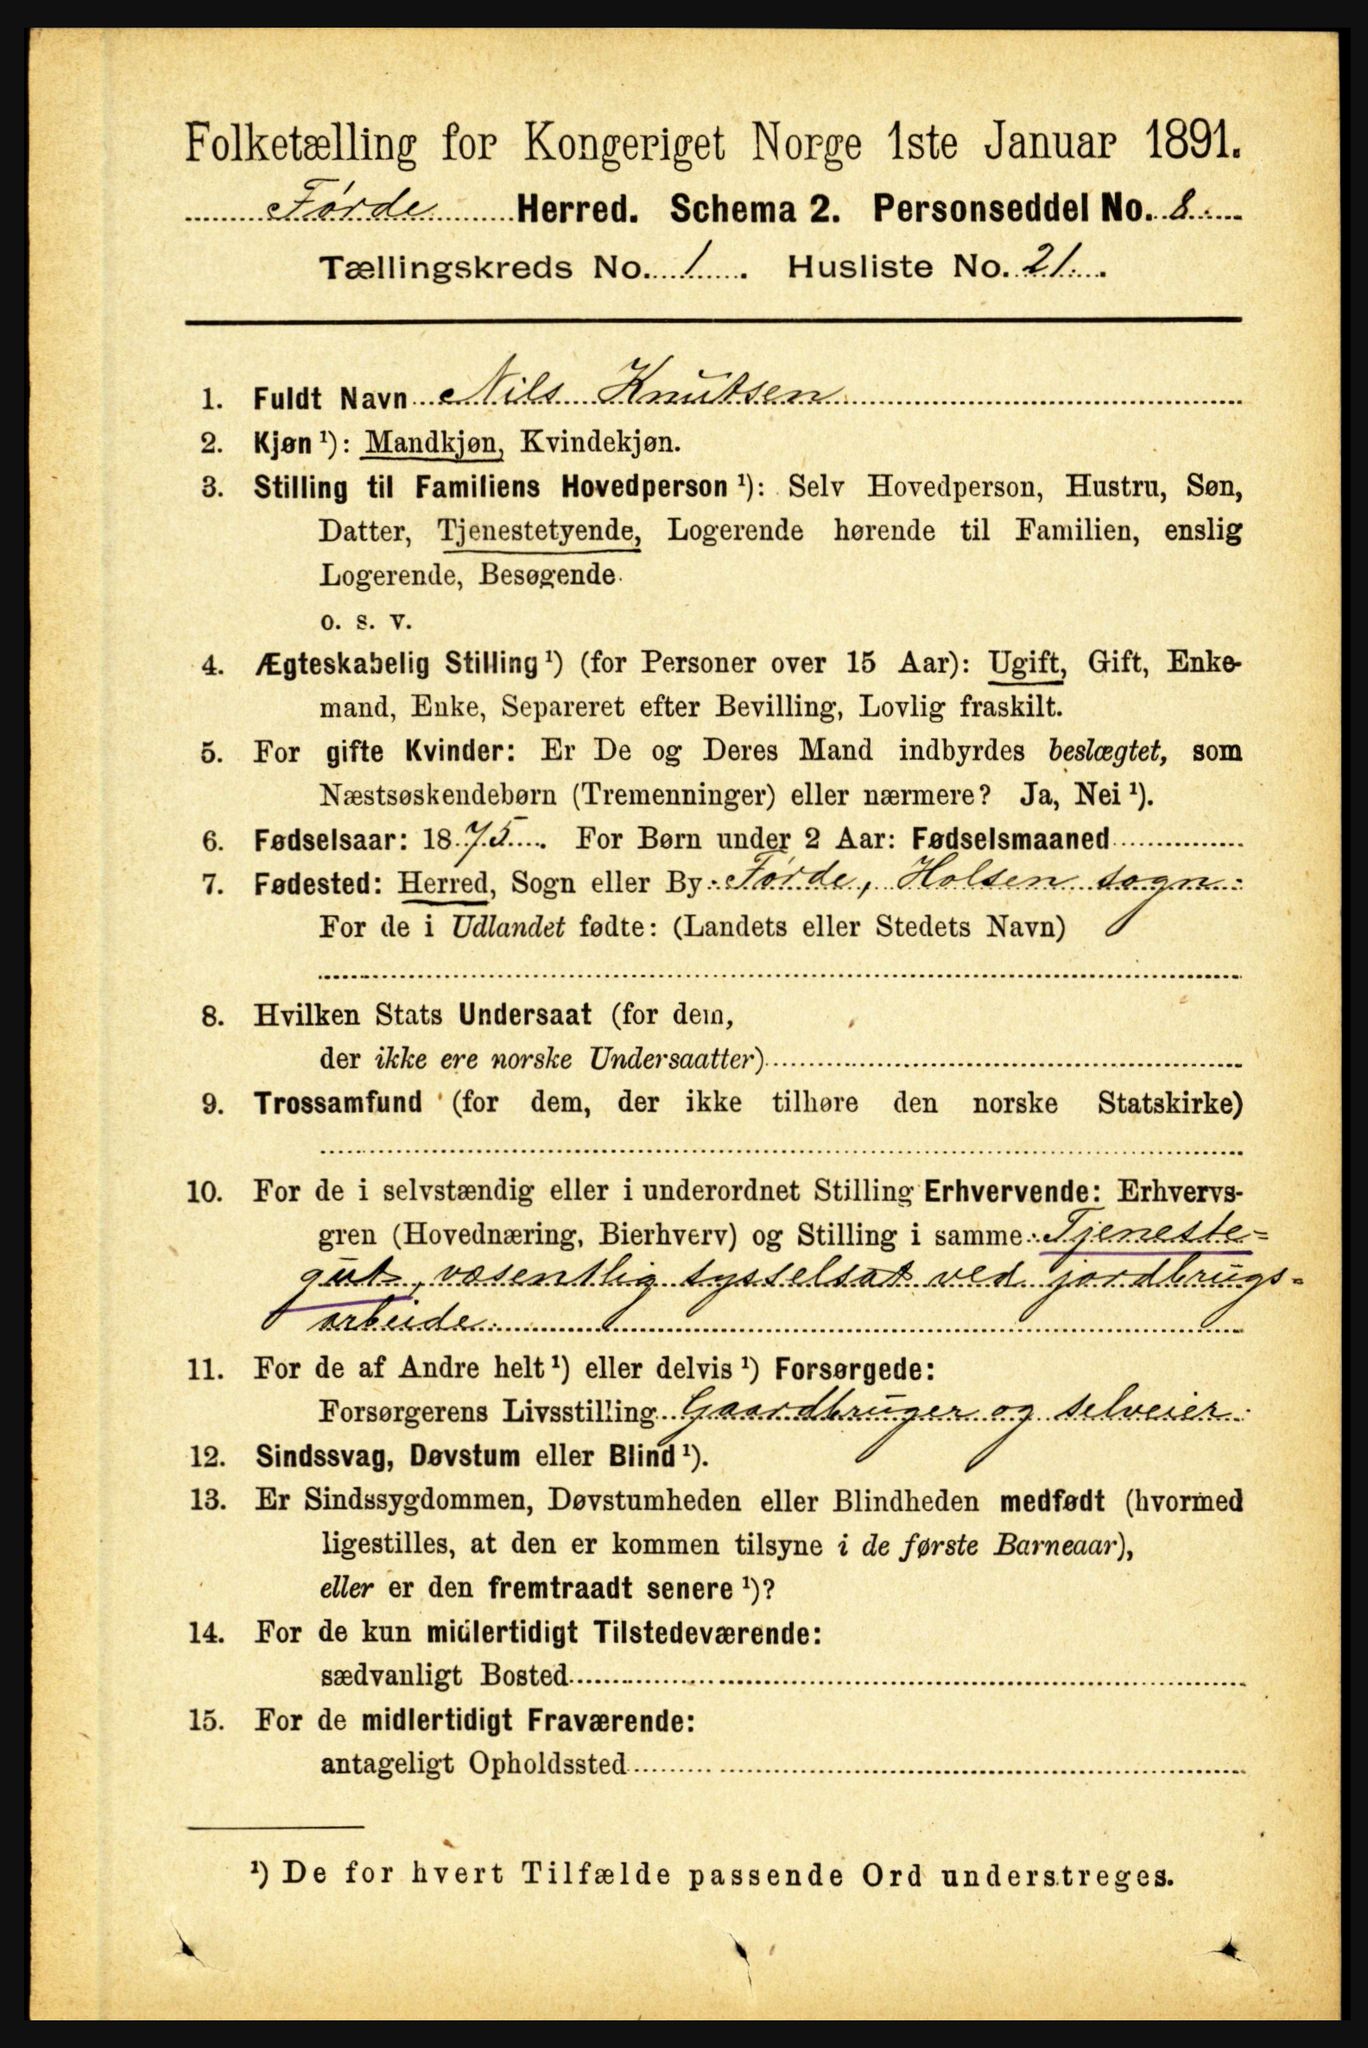 Folketælling for Kongeriget Norge 1ste Januar 1891.
Førde Herred. Schema 2. Personseddel No. 8.
Tællingskreds No. 1. Husliste No. 21.
1. Fuldt Navn Nils Knutsen
2. Kjøn ¹): Mandkjøn, Kvindekjøn.
3. Stilling til Familiens Hovedperson ¹): Selv Hovedperson, Hustru, Søn,
Datter, Tjenestetyende, Logerende hørende til Familien, enslig
Logerende, Besøgende
o. s. v.
4. Ægteskabelig Stilling ¹) (for Personer over 15 Aar): Ugift, Gift, Enke-
mand, Enke, Separeret efter Bevilling, Lovlig fraskilt.
5. For gifte Kvinder: Er De og Deres Mand indbyrdes beslægtet, som
Næstsøskendebørn (Tremenninger) eller nærmere? Ja, Nei ¹).
6. Fødselsaar: 1875. For Børn under 2 Aar: Fødselsmaaned
7. Fødested: Herred, Sogn eller By Førde, Holsen sogn.
For de i Udlandet fødte: (Landets eller Stedets Navn)
8. Hvilken Stats Undersaat (for dem,
der ikke ere norske Undersaatter)
9. Trossamfund (for dem, der ikke tilhøre den norske Statskirke)
10. For de i selvstændig eller i underordnet Stilling Erhvervende: Erhvervs-
gren (Hovednæring, Bierhverv) og Stilling i samme Tjeneste-
gut, væsentlig sysselsat ved jordbrugs-
arbeide.
11. For de af Andre helt ¹) eller delvis ¹) Forsørgede:
Forsørgerens Livsstilling Gaardbruger og selveier.
12. Sindssvag, Døvstum eller Blind ¹).
13. Er Sindssygdommen, Døvstumheden eller Blindheden medfødt (hvormed
ligestilles, at den er kommen tilsyne i de første Barneaar),
eller er den fremtraadt senere ¹)?
14. For de kun midlertidigt Tilstedeværende:
sædvanligt Bosted
15. For de midlertidigt Fraværende:
antageligt Opholdssted
¹) De for hvert Tilfælde passende Ord understreges.